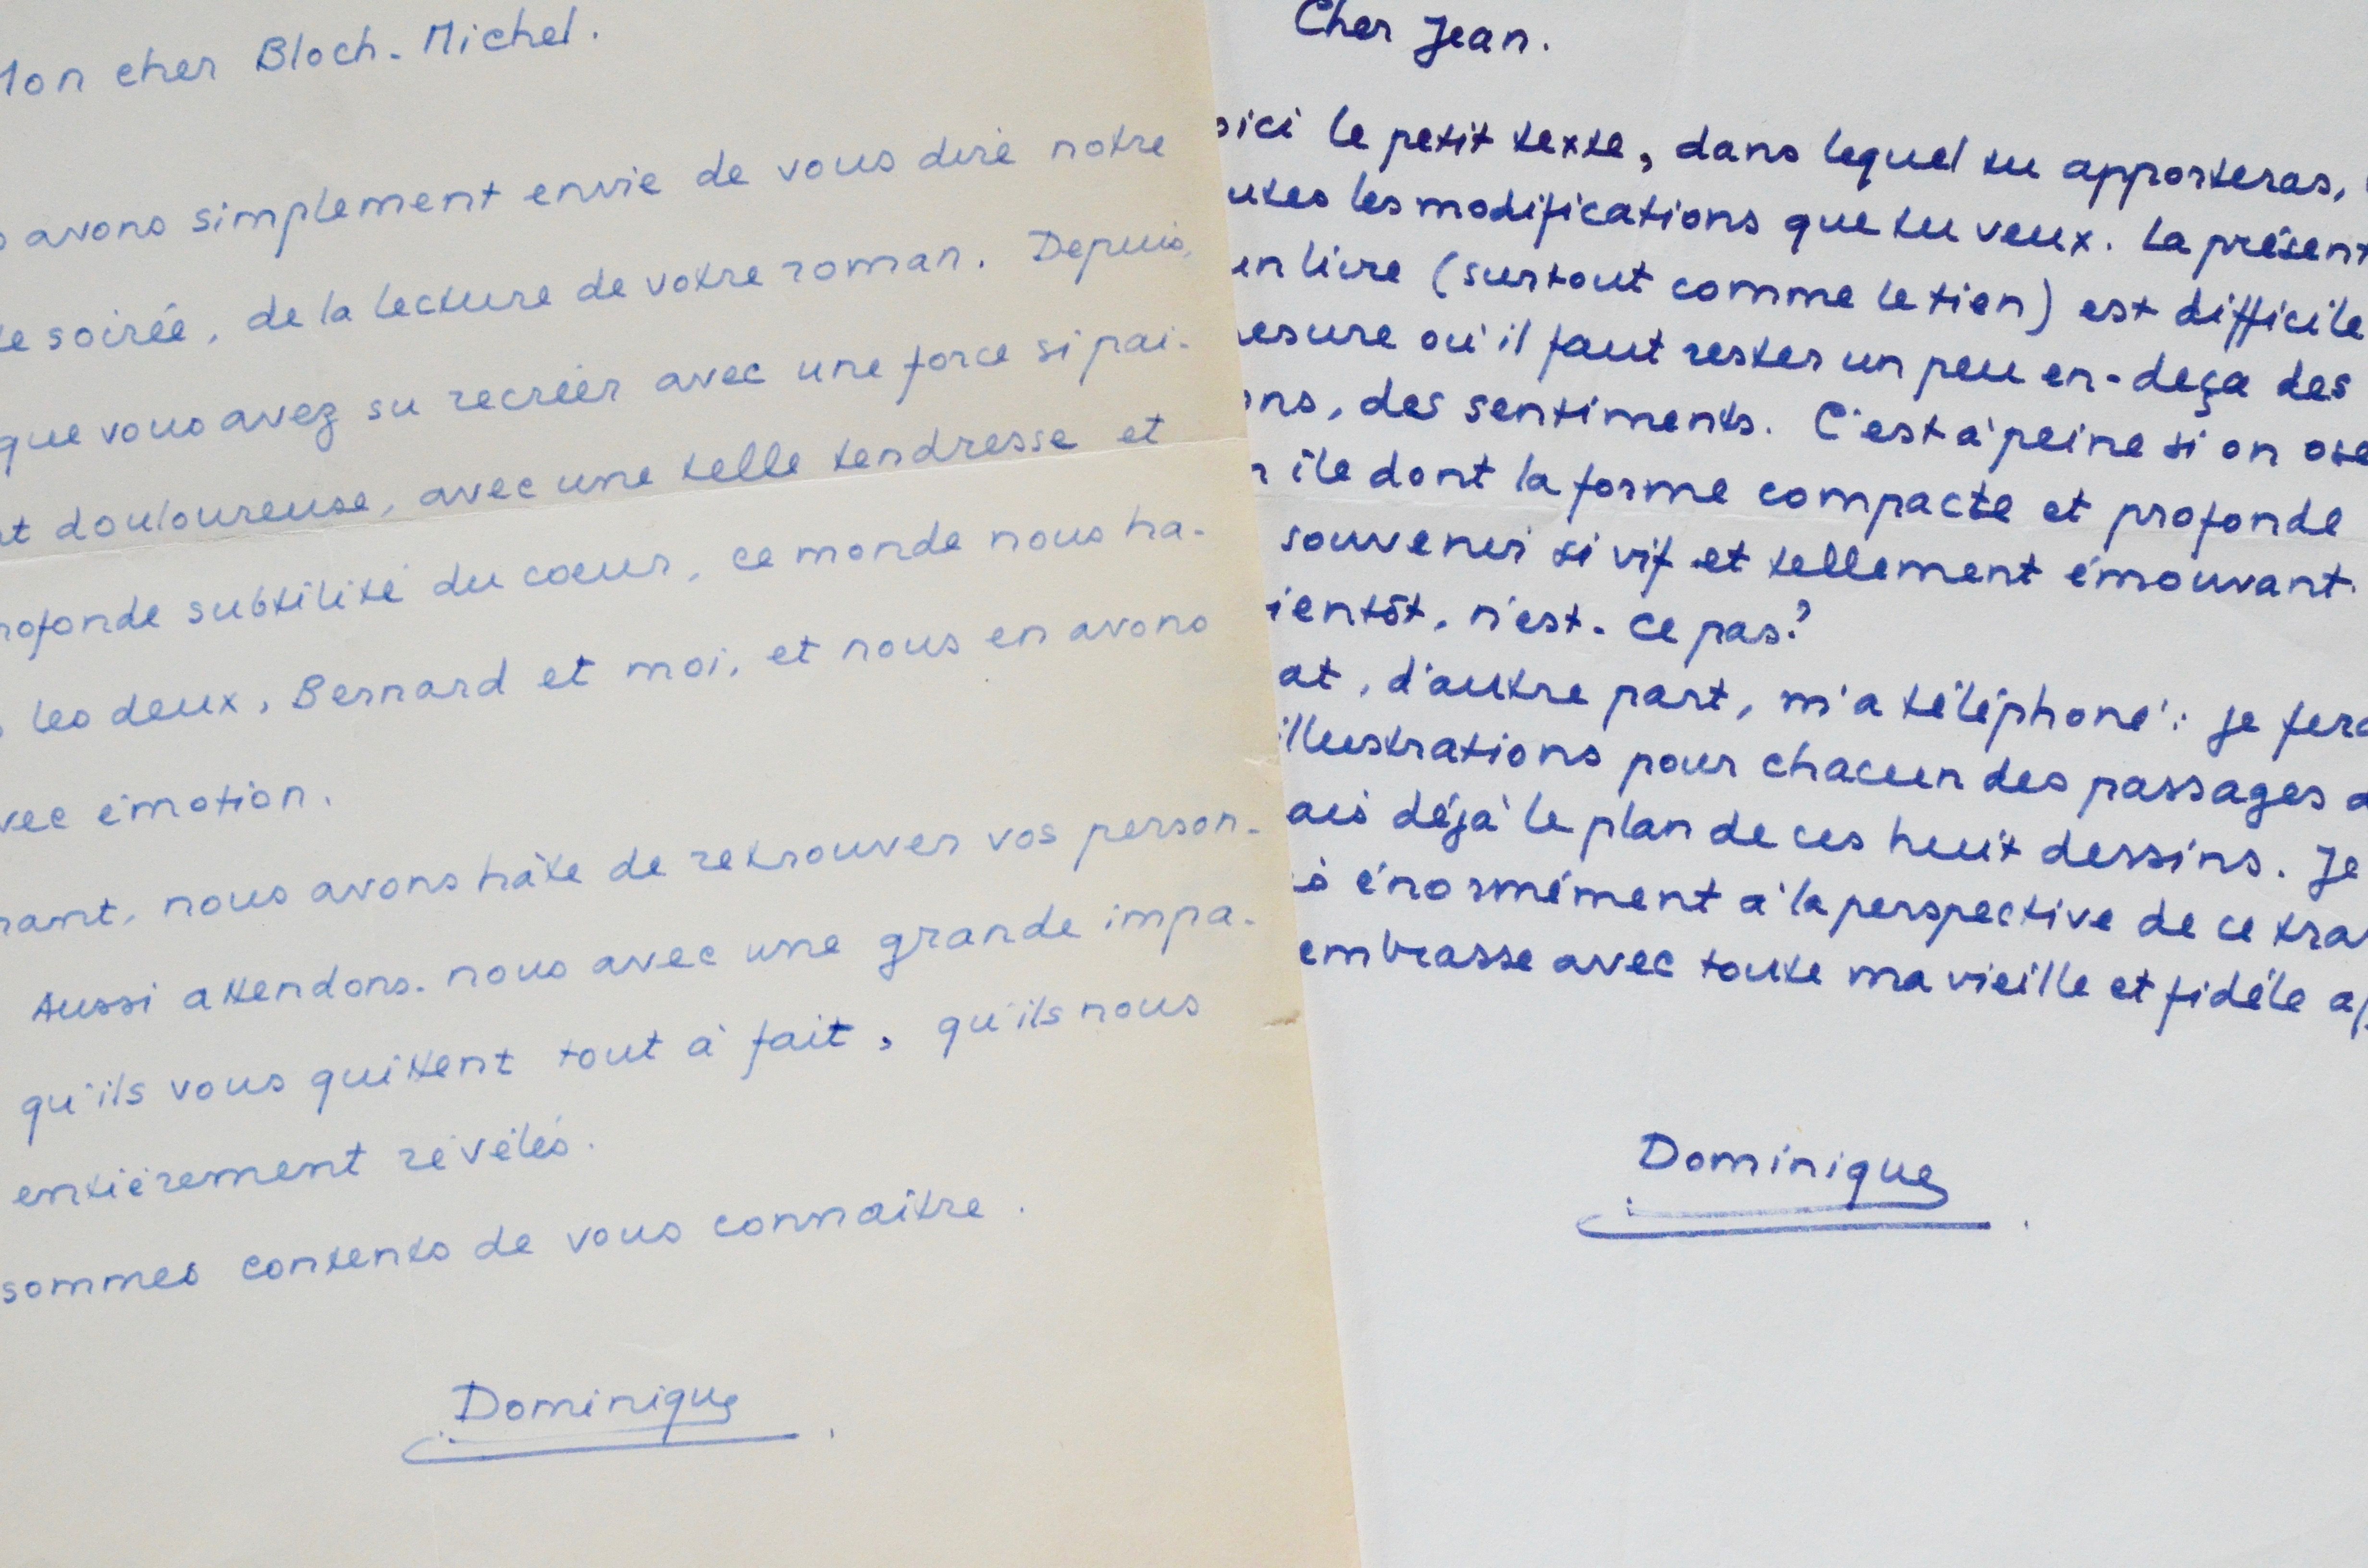 Mon cher Bloch-Michel.
avons simplement envie de vous dire notre
soirée, de la lecture de votre roman. Depuis,
que vous avez su recréer avec une force si pai-
douloureuse, avec une telle tendresse et
profonde subtilité du coeur, ce monde nous ha-
les deux, Bernard et moi, et nous en avons
avec émotion.
nous avons hâte de retrouver vos person-
Aussi attendons-nous avec une grande impa-
qu'ils vous quittent tout à fait, qu'ils nous
entièrement révélés.
sommes contents de vous connaître.
Dominique
Cher Jean.
Voici le petit texte, dans lequel tu apporteras,
toutes les modifications que tu veux. La présent
un livre (surtout comme le tien) est difficile
mesure où il faut rester un peu en-deça des
ons, des sentiments. C'est à peine si on ose
île dont la forme compacte et profonde
souvenir si vif et tellement émouvant.
bientôt, n'est-ce pas?
at, d'autre part, m'a téléphoné: je fera
illustrations pour chacun des passages
ais déjà le plan de ces huit dessins. Je
énormément à la perspective de ce tra
embrasse avec toute ma vieille et fidèle
Dominique